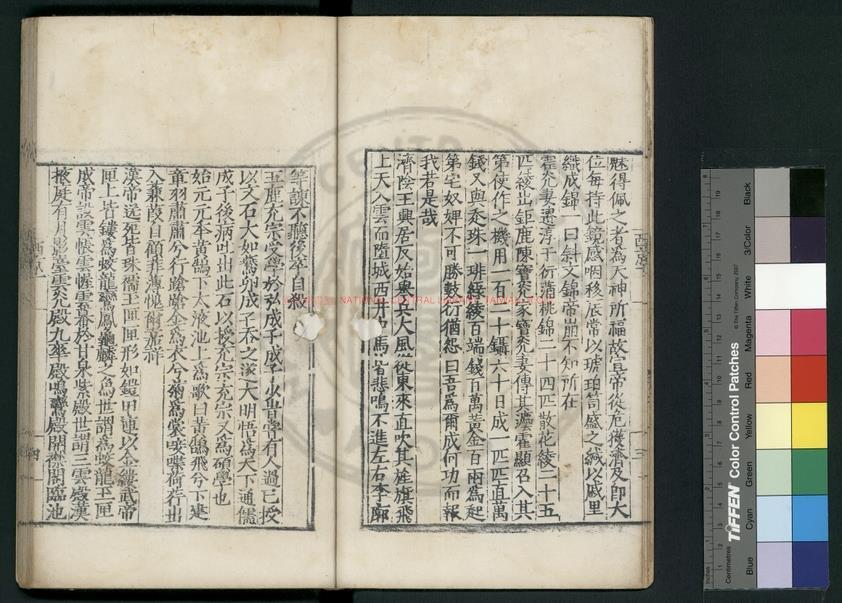 魅得佩之者為天神所福故宣帝從危獲濟及即大
位每持此鏡感咽移辰常以琥珀笥盛之緘以戚里
織成錦一曰斜文錦帝崩不知所在
霍光妻遺淳于衍蒲桃錦二十四匹散花綾二十五
匹綾出鉅鹿陳寶光家寶光妻傳其法霍顯召入其
第使作之機用一百二十鑷六十日成一匹匹直萬
錢又與走珠一琲綠綾百端錢百萬黃金百兩為起
第宅奴婢不可勝數衍猶怨曰吾為爾成何功而報
我若是哉
濟陰王興居反始舉兵大風從東來直吹其旌旗飛
上天入雲而墮城西井中馬皆悲鳴不進左右李廓
等諫不聽後卒自殺
五鹿充宗受學於弘成子成子少時嘗有人過己授
以文石大如鷰卵成子吞之遂大明悟為天下通儒
成子後病吐出此石以授充宗充宗又為碩學也
始元元年黃鵠下太液池上為歌曰黃鵠飛兮下建
章羽肅肅兮行蹌蹌金為衣兮菊為裳唼喋荷荇出
入蒹葭自顧菲薄愧爾嘉祥
漢帝送死皆珠襦玉匣匣形如鎧甲連以金縷武帝
匣上皆鏤為蛟龍鸞鳳龜麟之為世謂為蛟龍玉匣
成帝設雲帳雲幄雲幕於甘泉紫殿世謂三雲殿漢
掖庭有月影臺雲光殿九華殿鳴鸞殿開襟閣臨池
NATIONAL CENTRAL LIBRARY
TIFFEN Color Control Patches
© The Tiffen Company, 2007
Centimetres
Inches
Blue
Cyan
Green
Yellow
Red
Magenta
White
3/Color
Black